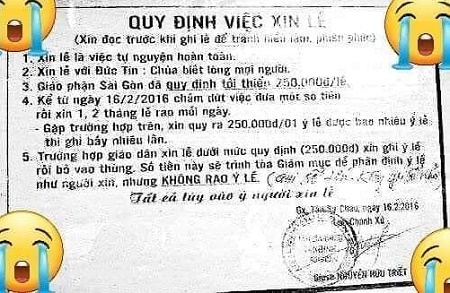 QUY ĐỊNH VIỆC XIN LỄ
(Xin đọc trước khi ghi lễ để tránh hiểu lầm, phiền phức)
1. Xin lễ là việc tự nguyện hoàn toàn.
2. Xin lễ với Đức Tin : Chúa biết lòng mọi người.
3. Giáo phận Sài Gòn đã quy định tối thiểu 250.000đ/lễ.
4. Kể từ ngày 16/2/2016 chấm dứt việc đưa một số tiền
rồi xin 1, 2 tháng lễ rao mỗi ngày.
- Gặp trường hợp trên, xin quy ra 250.000đ/01 ý lễ được bao nhiêu ý lễ
thì ghi bấy nhiêu lần.
5. Trường hợp giáo dân xin lễ dưới mức quy định (250.000đ) xin ghi ý lễ
rồi bỏ vào thùng. Số tiền này sẽ trình tòa Giám mục để phân định ý lễ
như người xin, nhưng KHÔNG RAO Ý LỄ.
Tất cả tùy vào ý người xin lễ
Gx. Tân Sa Châu, ngày 16.2.2016
Linh Mục Chánh Xứ
NGUYỄN HỮU TRIẾT